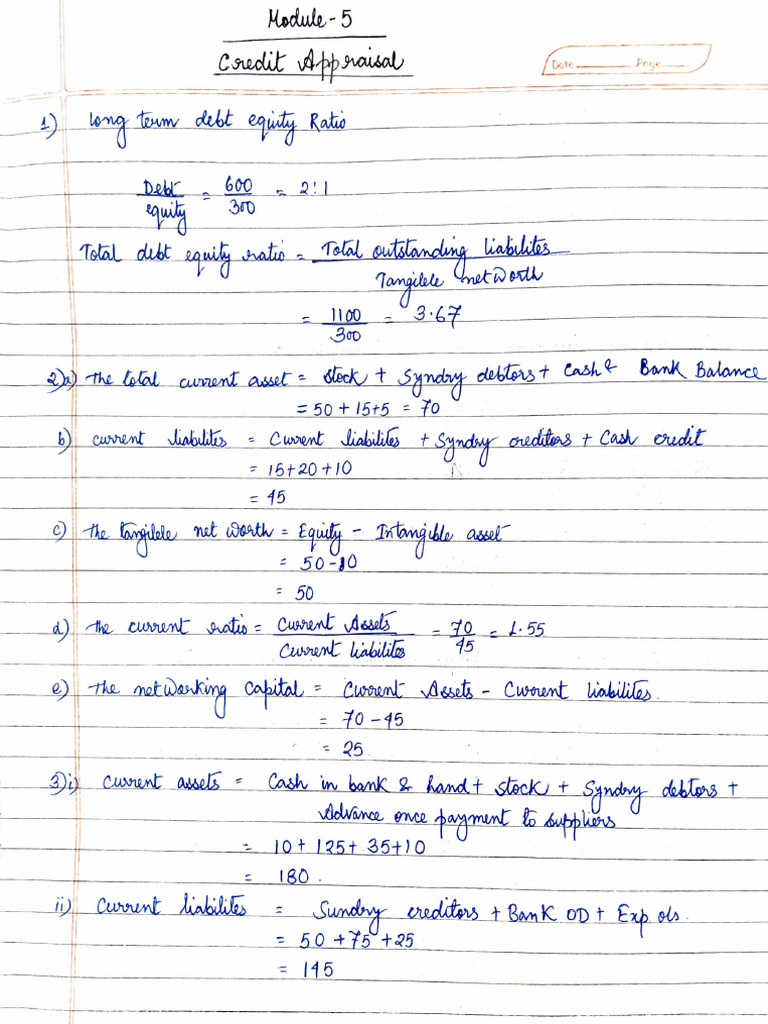 Module-5
Credit Appraisal
Date Page
1) Long term debt equity Ratio
Debt/equity = 600/300 = 2:1
Total debt equity ratio = Total outstanding liabilites / Tangilele netWorth
= 1100/300 = 3.67
2)a) The total current asset = stock + Syndry debtors + Cash & Bank Balance
= 50 + 15+5 = 70
b) current liabilites = Current liabilites + Syndry creditors + Cash credit
= 15+20+10
= 45
c) the tangilele net worth = Equity - Intangible asset
= 50-10
= 50
d) the current ratio = Current Assets / Current liabilites = 70/45 = 1.55
e) the netWorking Capital = Current Assets - Current liabilites.
= 70-45
= 25
3)i) Current assets = Cash in bank & hand + stock + Syndry debtors +
Advance once payment to suppliers
= 10+125+35+10
= 180.
ii) Current liabilites = Sundry creditors + Bank OD + Exp ols.
= 50+75+25
= 145